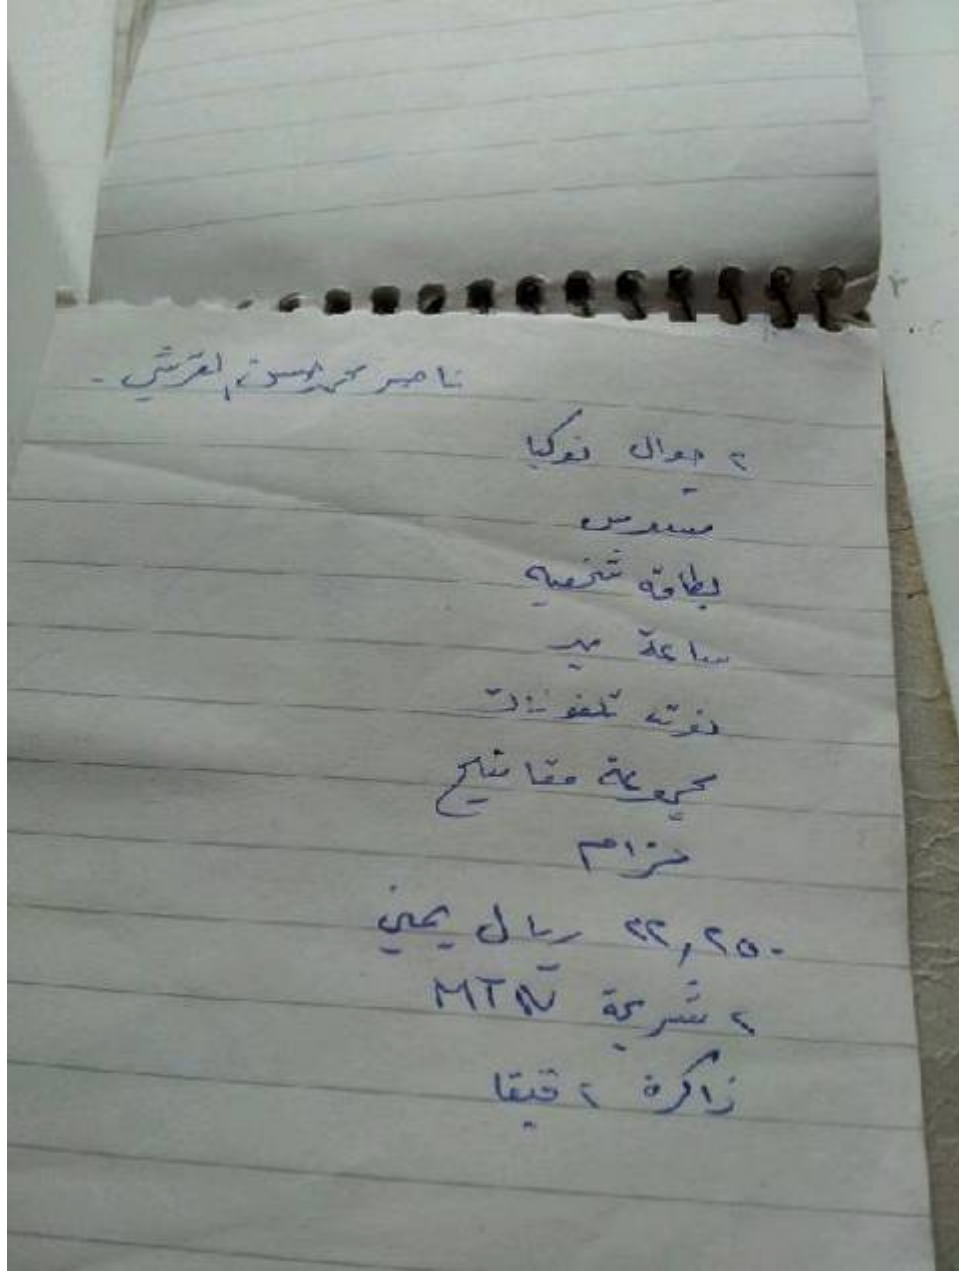 ناصر محمد حسون القرشي -
٢ جوال نوكيا
مسدس
بطاقة شخصيه
ساعة يد
نوته تلفونات
مجموعة مفاتيح
حزام
٢٢,٢٥٠ ريال يمني
٢ شريحة MTN
ذاكرة ٢ قيقا